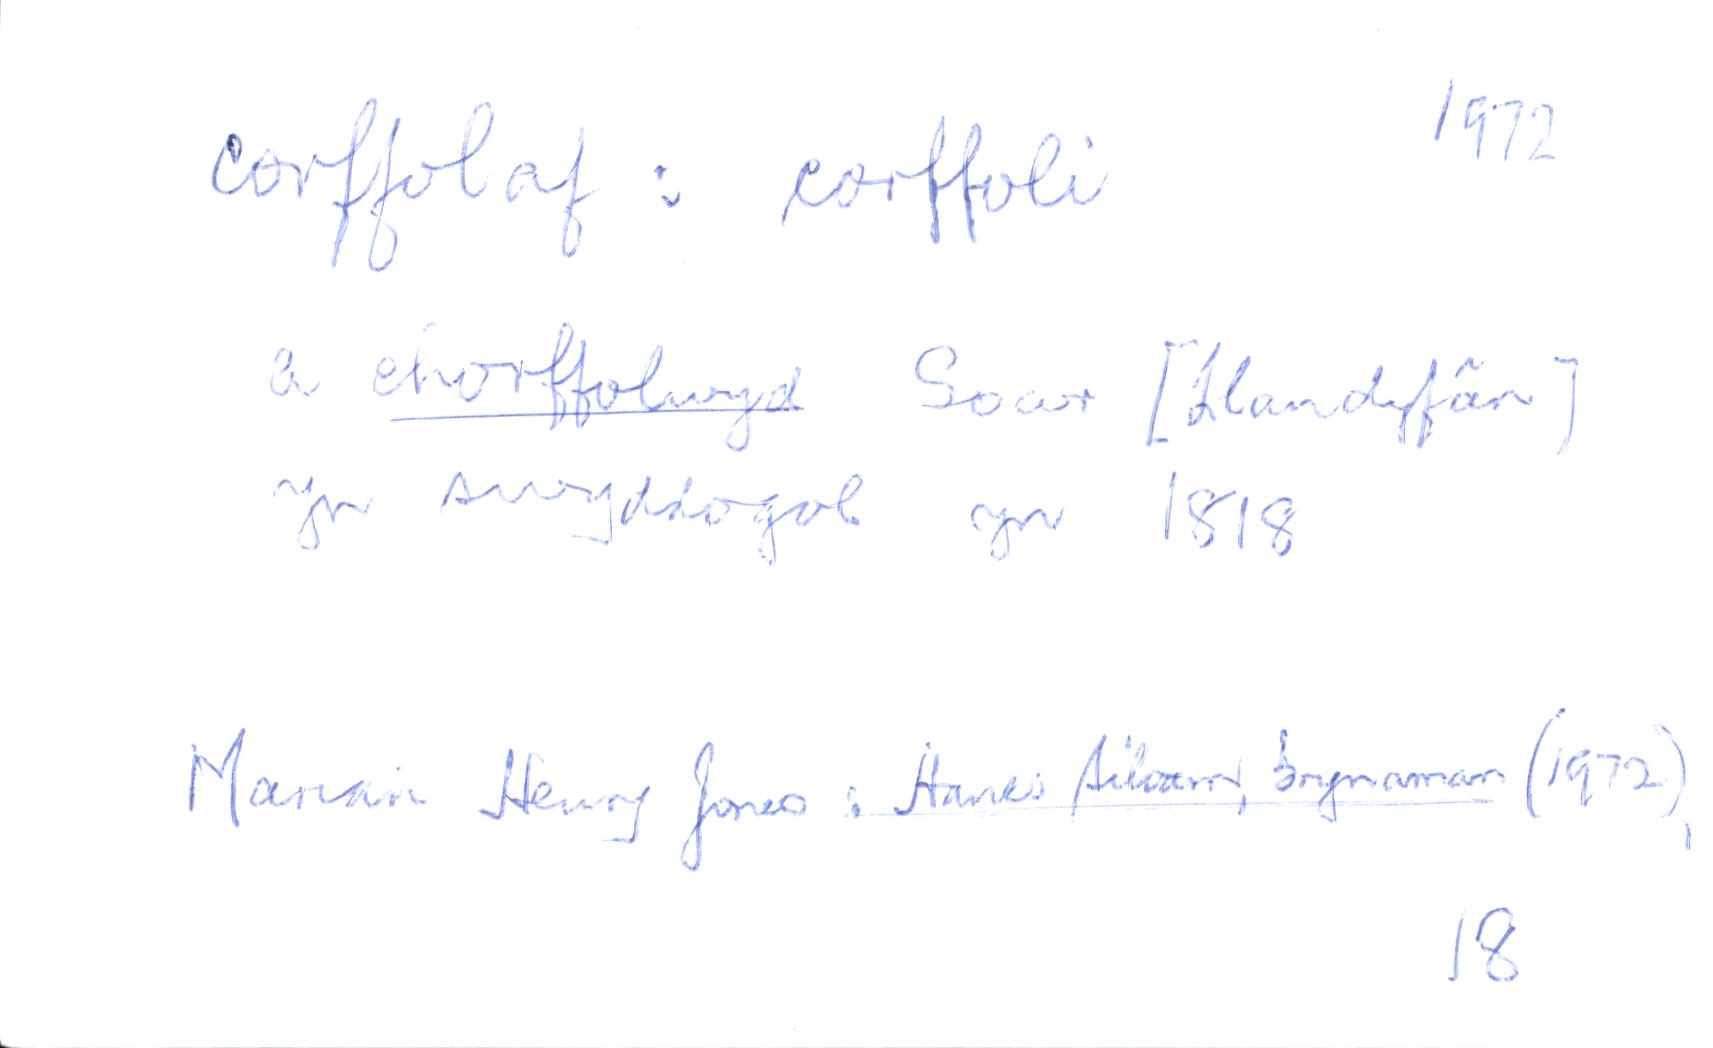 corffolaf : corffoli 1972
a chorffolwyd Soar [Llandyfân]
yn swyddogol yn 1818
Marian Henry Jones : Hanes Siloam, Brynaman (1972),
18